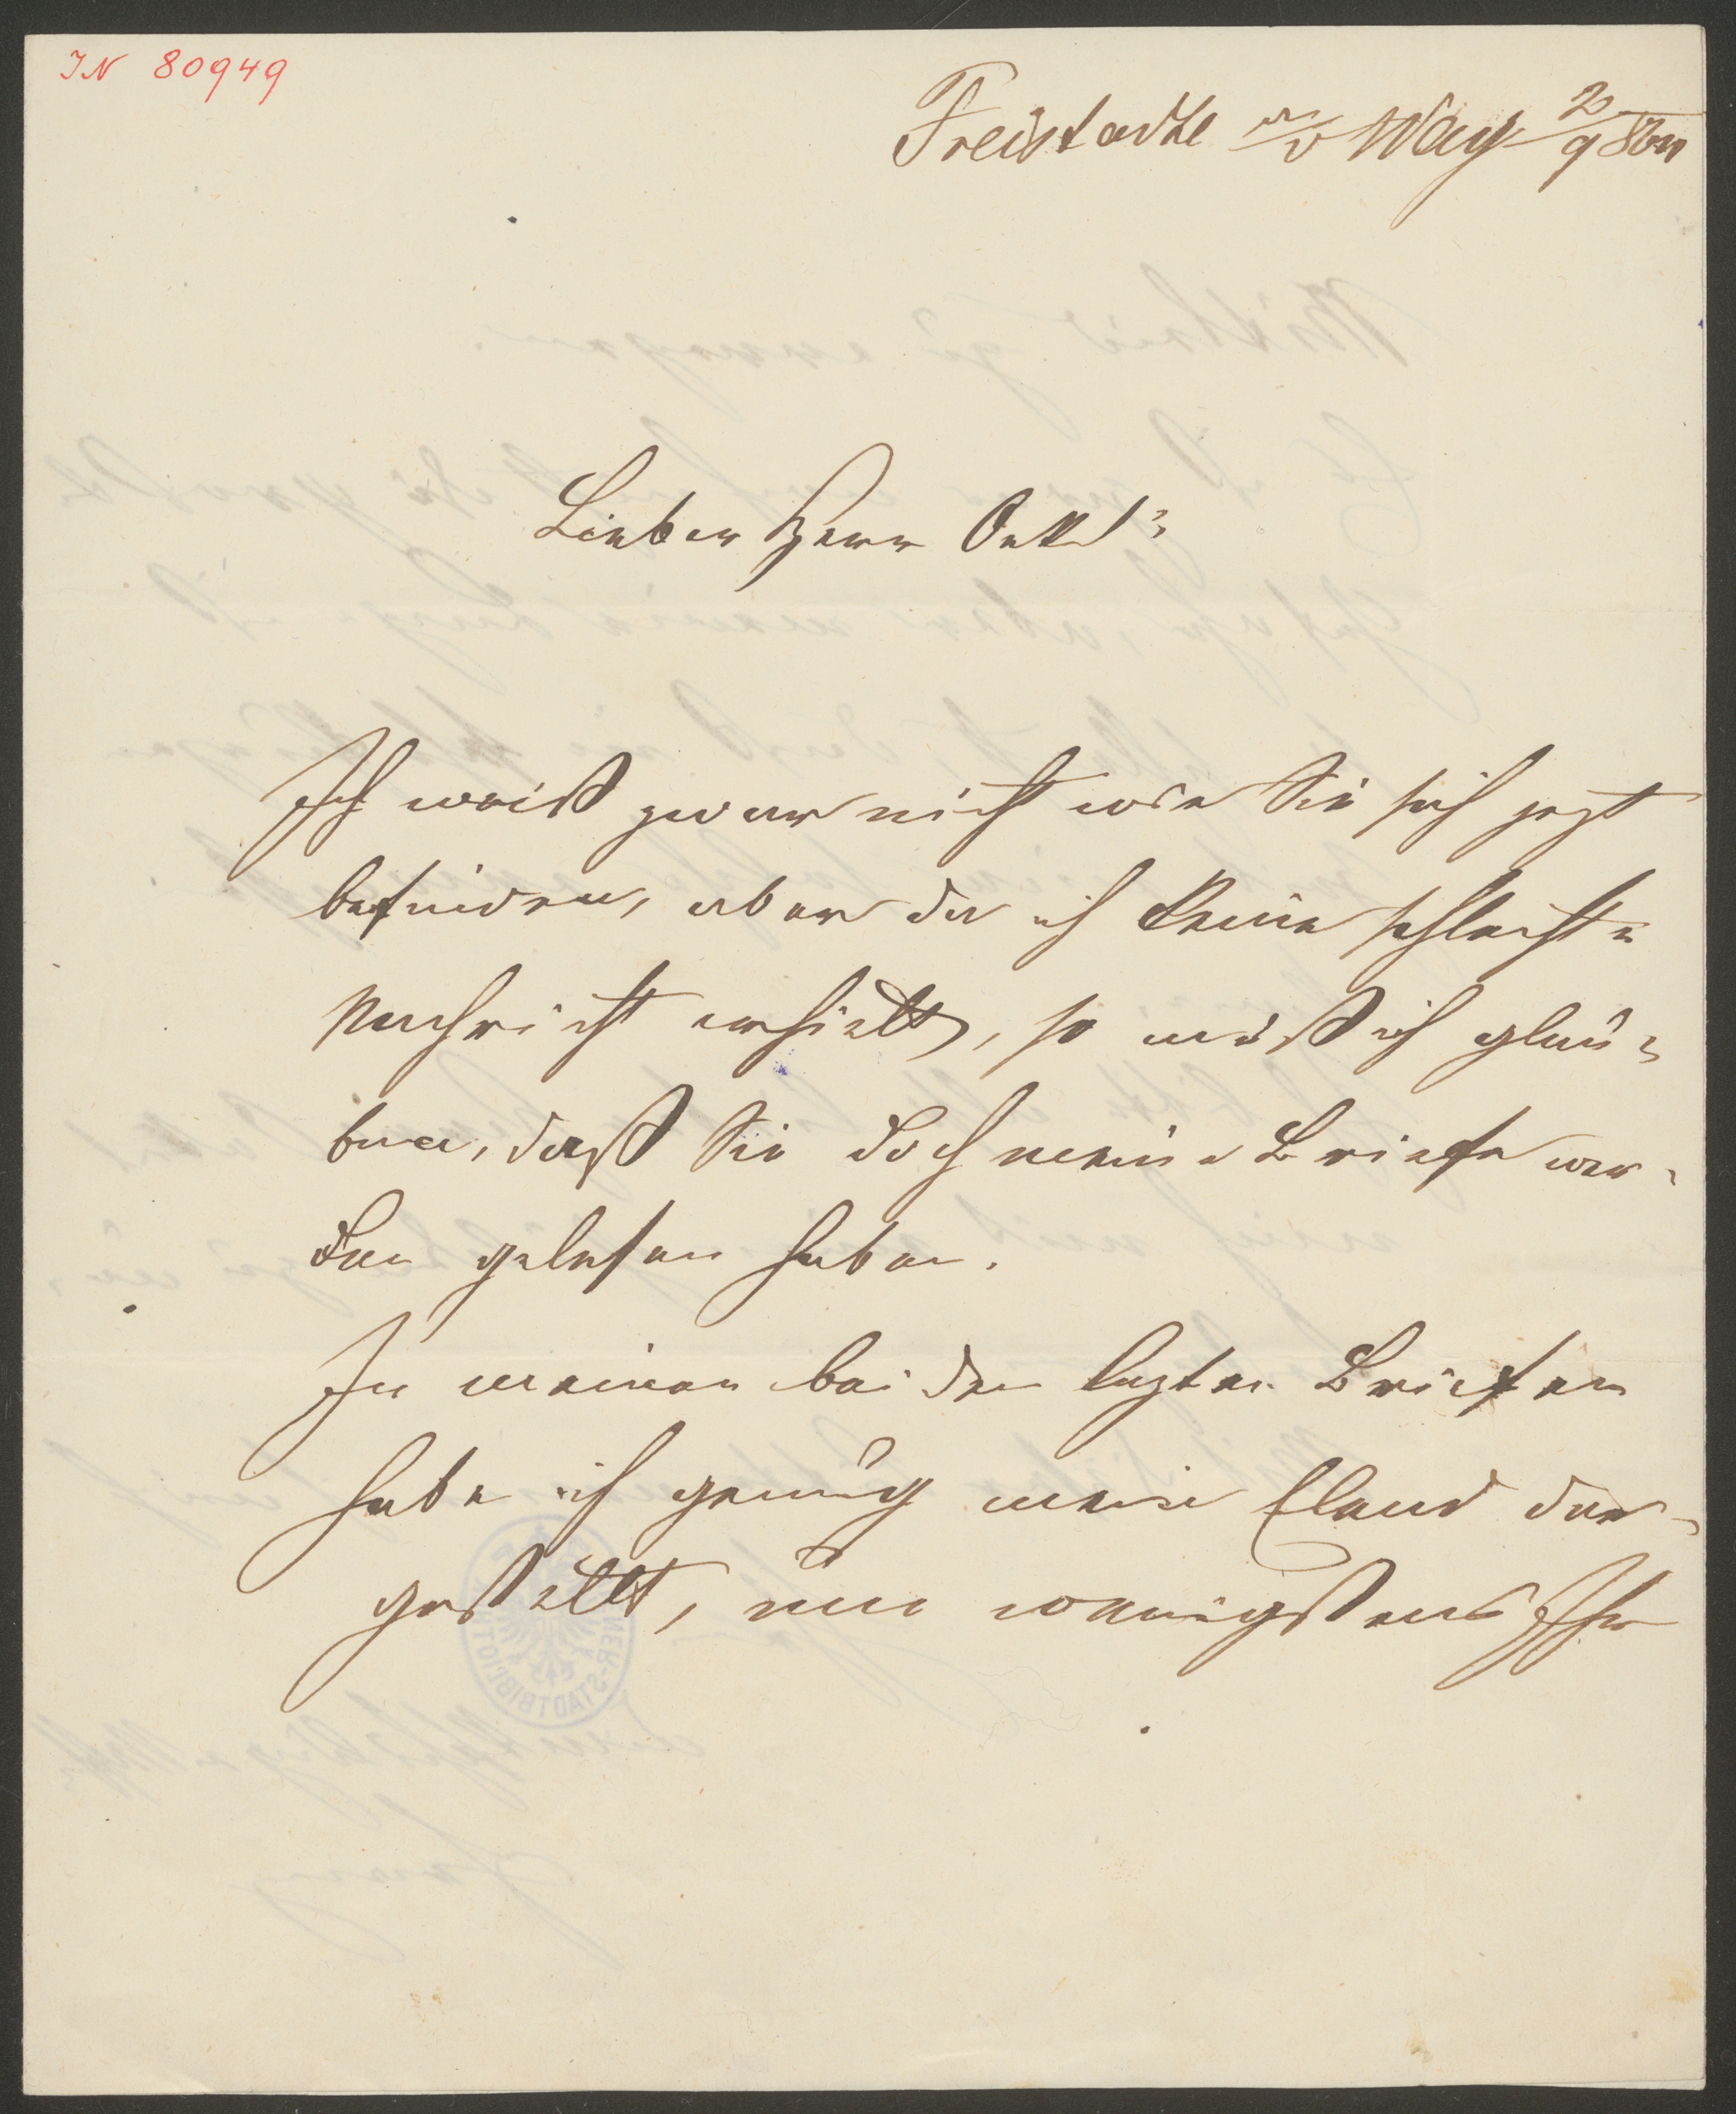 IN 80949
Freistadtl a/d Waag 2/9 860
Lieber Herr Onkl!
Ich weiß zwar nicht wie Sie sich jezt
befinden, aber da ich keine schlechte
Nachricht erhielt, so muß ich glau-
ben, daß Sie doch meine Briefe wer-
den gelesen haben.
In meinen beiden lezten Briefen
habe ich genug mein Elend dar-
gestellt, um wenigstens Ihr